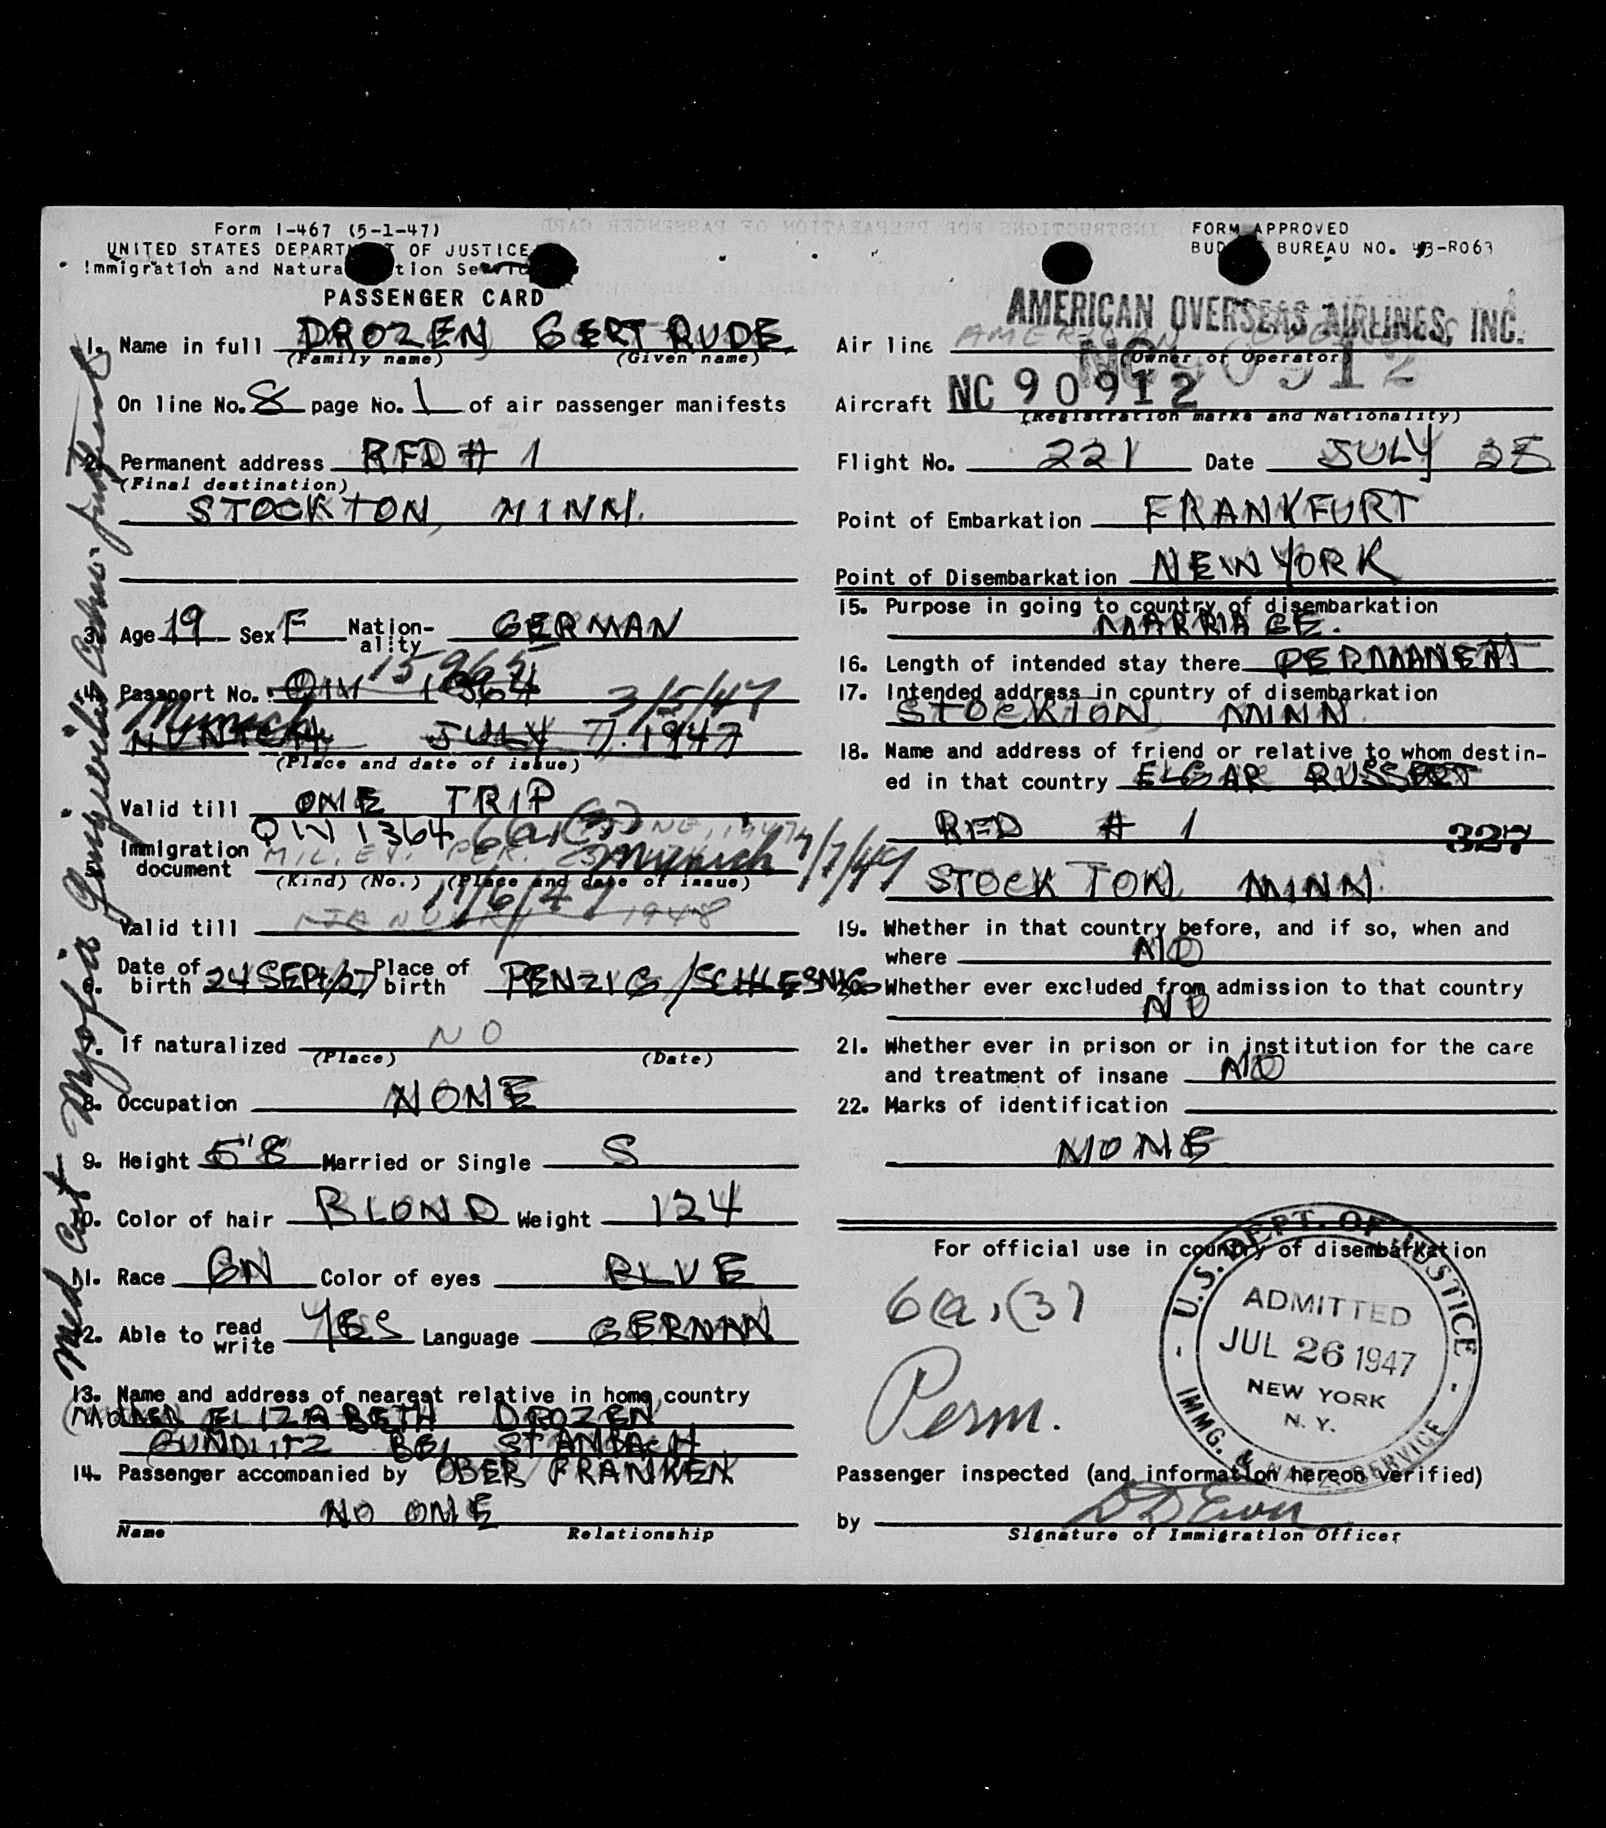 Form I-467 (5-1-47)
UNITED STATES DEPARTMENT OF JUSTICE
Immigration and Naturalization Service
PASSENGER CARD
FORM APPROVED
BUDGET BUREAU NO. 43-R063
1. Name in full DROZEN GERTRUDE
(Family name) (Given name)
On line No. 8 page No. 1 of air passenger manifests
2. Permanent address RFD # 1
(Final destination)
STOCKTON MINN.
3. Age 19 Sex F Nation-ality GERMAN
4. Passport No. 3/5/47
Munich
MUNICH JULY 7. 1947
(Place and date of issue)
Valid till ONE TRIP
QIV 1364 6(a)(3)
5. Immigration document Munich 7/7/47
(Kind) (No.) (Place and date of issue)
11/6/47
Valid till JANUARY 1948
6. Date of birth 24 SEPT/27 Place of birth PENZIG/SCHLESNIG
7. If naturalized NO
(Place) (Date)
8. Occupation NONE
9. Height 5'8 Married or Single S
10. Color of hair BLOND Weight 124
11. Race GN Color of eyes BLUE
12. Able to read write YES Language GERMAN
13. Name and address of nearest relative in home country
(MOTHER ELIZABETH DROZEN
GUNDLITZ BEI STAMBACH
OBER FRANKEN
14. Passenger accompanied by
NO ONE
Name Relationship
Med Cert Myopia
AMERICAN OVERSEAS AIRLINES, INC.
Air line
(Owner or Operator)
NC 90912
Aircraft NC 90912
(Registration marks and Nationality)
Flight No. 221 Date JULY 25
Point of Embarkation FRANKFURT
Point of Disembarkation NEW YORK
15. Purpose in going to country of disembarkation
MARRIAGE.
16. Length of intended stay there PERMANENT
17. Intended address in country of disembarkation
STOCKTON MINN
18. Name and address of friend or relative to whom destin-
ed in that country ELGAR RUSSERT
RFD # 1 327
STOCKTON MINN.
19. Whether in that country before, and if so, when and
where NO
20. Whether ever excluded from admission to that country
NO
21. Whether ever in prison or in institution for the care
and treatment of insane NO
22. Marks of identification
NONE
For official use in country of disembarkation
6(a)(3)
Perm.
U.S. DEPT. OF JUSTICE
ADMITTED
JUL 26 1947
NEW YORK
N. Y.
IMMG. & NATZ. SERVICE
Passenger inspected (and information hereon verified)
by
Signature of Immigration Officer